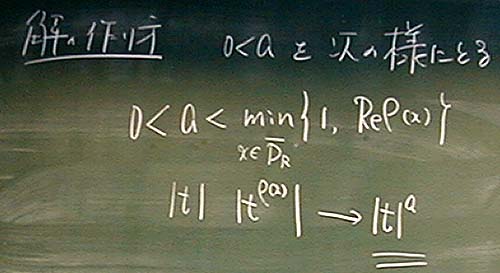 解の作り方 0<a を 次の様にとる
0 < a < min_{x∈D̅_R} {1, Re ρ(x)}
|t| |t^{ρ(x)}| → |t|^a